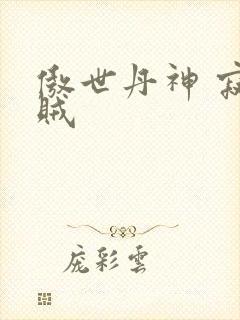 傲世丹神 寂
贼
庞彩雲